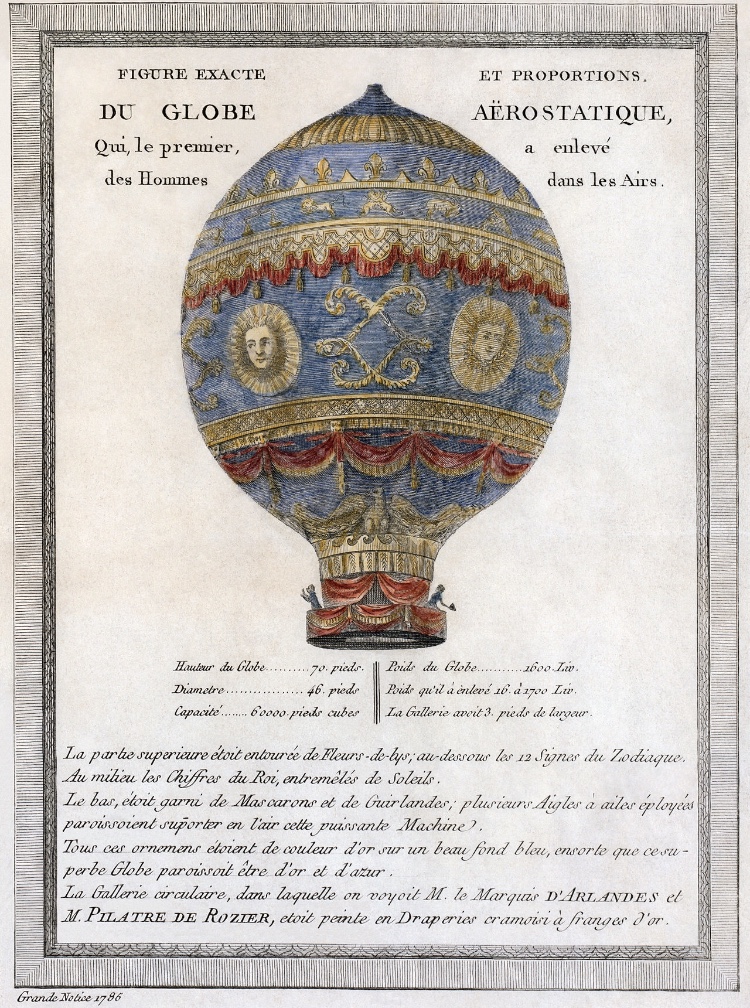 FIGURE EXACTE ET PROPORTIONS,
DU GLOBE AËROSTATIQUE,
Qui, le premier, a enlevé
des Hommes dans les Airs.
Hauteur du Globe..........70. pieds.
Diametre.................46. pieds
Capacité.......60000.pieds cubes
Poids du Globe..........1600.Liv.
Poids qu'il à enlevé 16. à 1700 Liv.
La Gallerie avoit 3. pieds de largeur.
La partie superieure étoit entourée de Fleurs-de-lys; au-dessous les 12 Signes du Zodiaque.
Au milieu les Chiffres du Roi, entremêlés de Soleils.
Le bas, étoit garni de Mascarons et de Guirlandes; plusieurs Aigles à ailes éployées
paroissoient suporter en l'air cette puissante Machine.
Tous ces ornemens étoient de couleur d'or sur un beau fond bleu, ensorte que ce su-
perbe Globe paroissoit être d'or et d'azur.
La Gallerie circulaire, dans laquelle on voyoit M. le Marquis D'ARLANDES et
M. PILATRE DE ROZIER, etoit peinte en Draperies cramoisi à franges d'or.
Grande Notice 1786